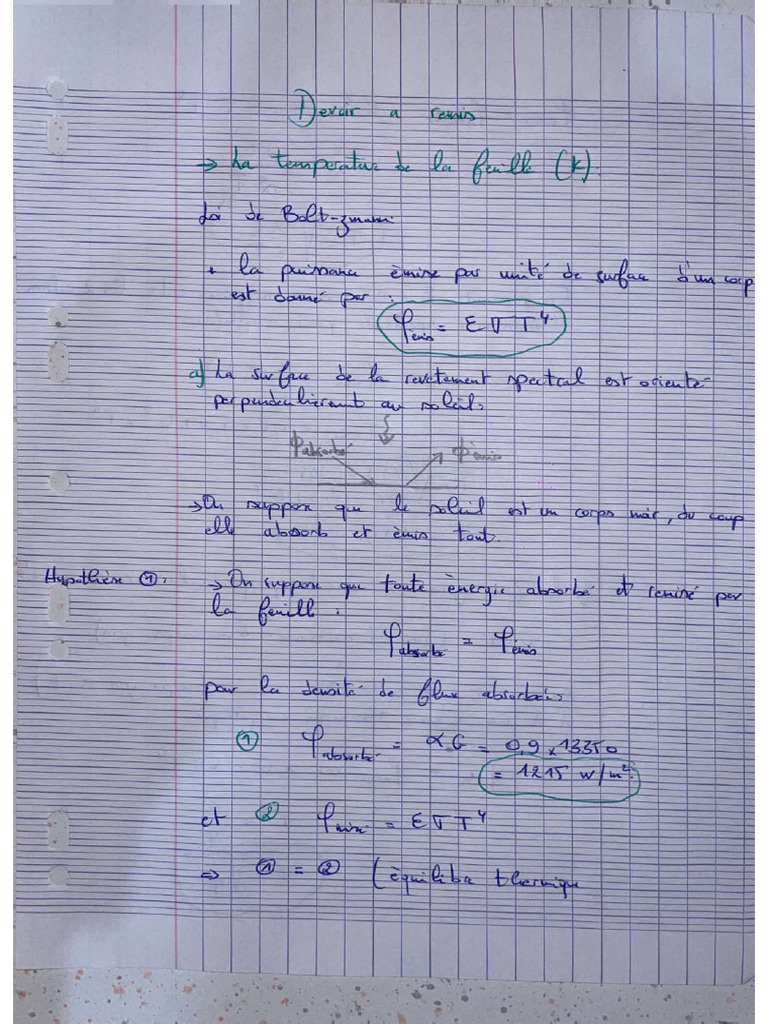 Devoir a remis
→ La temperature de la feuille (K).
Loi de Bolt-zmann:
+ la puissance émise par unité de surface d'un corp
est donné par :
φémis = ε σ T⁴
a) La surface de la revetement spectral est orienté
perpendiculièrement au soleil.
φabsorbé φémis
→ On suppose que le soleil est un corps noir, du coup
elle absorb et émis tout.
Hypothèse ①: → On suppose que toute énergie absorbé et remise par
la feuill :
φabsorbé = φémis
pour la densité de flux absorbée
① φabsorbé = α G = 0,9 x 13350
= 1215 w/m².
et ② φémis = ε σ T⁴
⇒ ① = ② (équilibre thermique